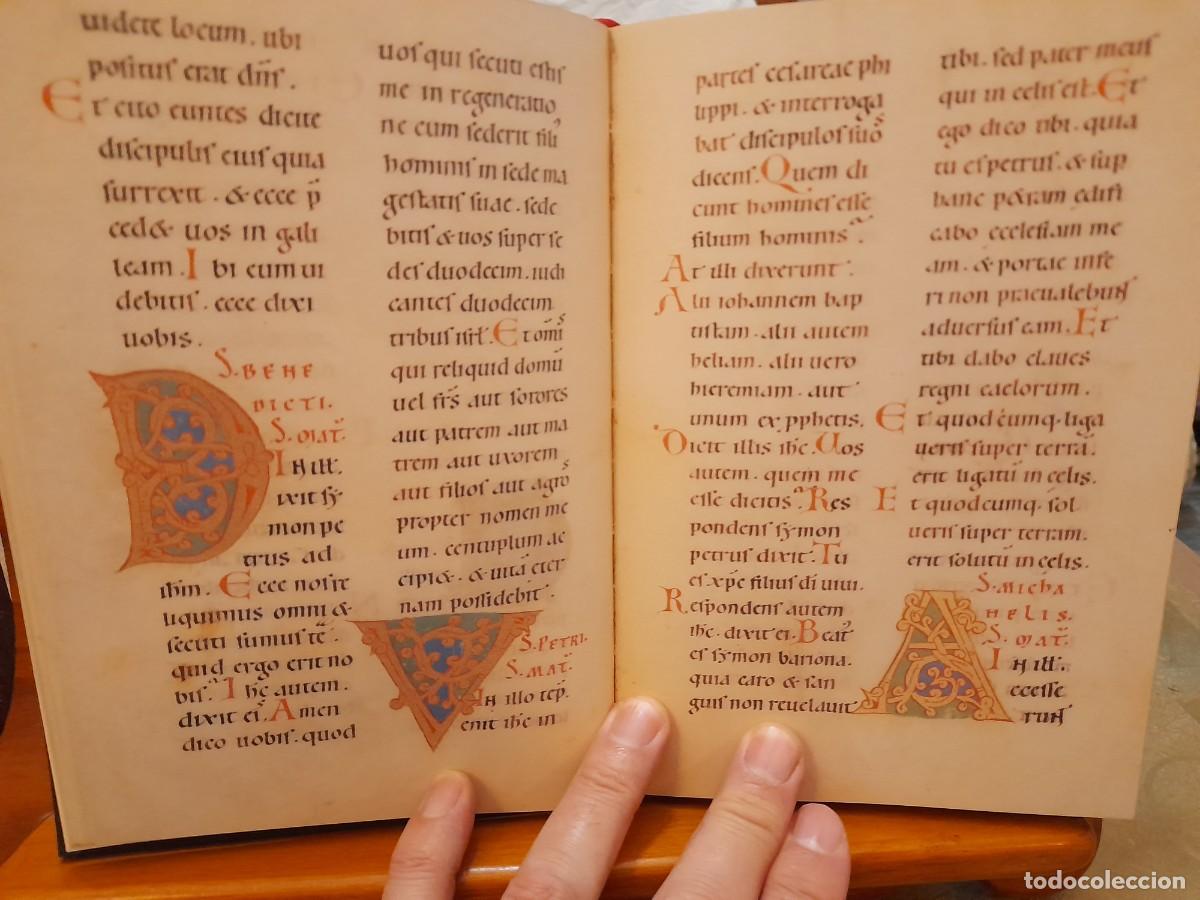 uidete locum. ubi
positus erat dñs.
Et cito euntes dicite
discipulis eius quia
surrexit. & ecce p̄
ced& uos in gali
leam. Ibi eum ui
debitis. ecce dixi
uobis.
S. BENE
DICTI.
S. MAT̄.
IN ILL̄.
Dixit sy
mon pe
trus ad
ihm̄. Ecce nos re
liquimus omnia &
secuti sumus te.
quid ergo erit no
bis. Ihc̄ autem.
dixit eis. Amen
dico uobis. quod
uos qui secuti estis
me in regeneratio
ne cum sederit fili᾽
hominis in sede ma
gestatis suae. sede
bitis & uos super se
des duodecim. iudi
cantes duodecim
tribus isrł. Et om̄is
qui reliquid domū
uel frs̄ aut sorores
aut patrem aut ma
trem aut uxorem
aut filios aut agros
propter nomen me
um. centuplum ac
cipi&. & uitā eter
nam possidebit.
S. PETRI.
S. MAT̄.
IN illo tēp.
Venit ihc̄ in
partes cesareae phi
lippi. & interroga
bat discipulos suos
dicens. Quem di
cunt homines esse
filium hominis.
At illi dixerunt.
Alii iohannem bap
tistam. alii autem
heliam. alii uero
hieremiam. aut
unum ex pphetis.
Dicit illis ihc̄. Uos
autem. quem me
esse dicitis. Res
pondens symon
petrus dixit. Tu
es xp̄c filius di uiui.
Respondens autem
ihc̄. dixit ei. Beat᾽
es symon bariona.
quia caro & san
guis non reuelauit
tibi. sed pater meus
qui in celis est. Et
ego dico tibi. quia
tu es petrus. & sup
hanc p&ram edifi
cabo ecclesiam me
am. & portae infe
ri non praeualebunt
aduersus eam. Et
tibi dabo claues
regni caelorum.
Et quodcūmq. liga
ueris super terrā.
erit ligatū in celis.
Et quodcumq. sol
ueris super terram.
erit solutū in celis.
S. MICHA
HELIS.
S. MAT̄.
IN ILL̄.
Accesse
runt
todocoleccion